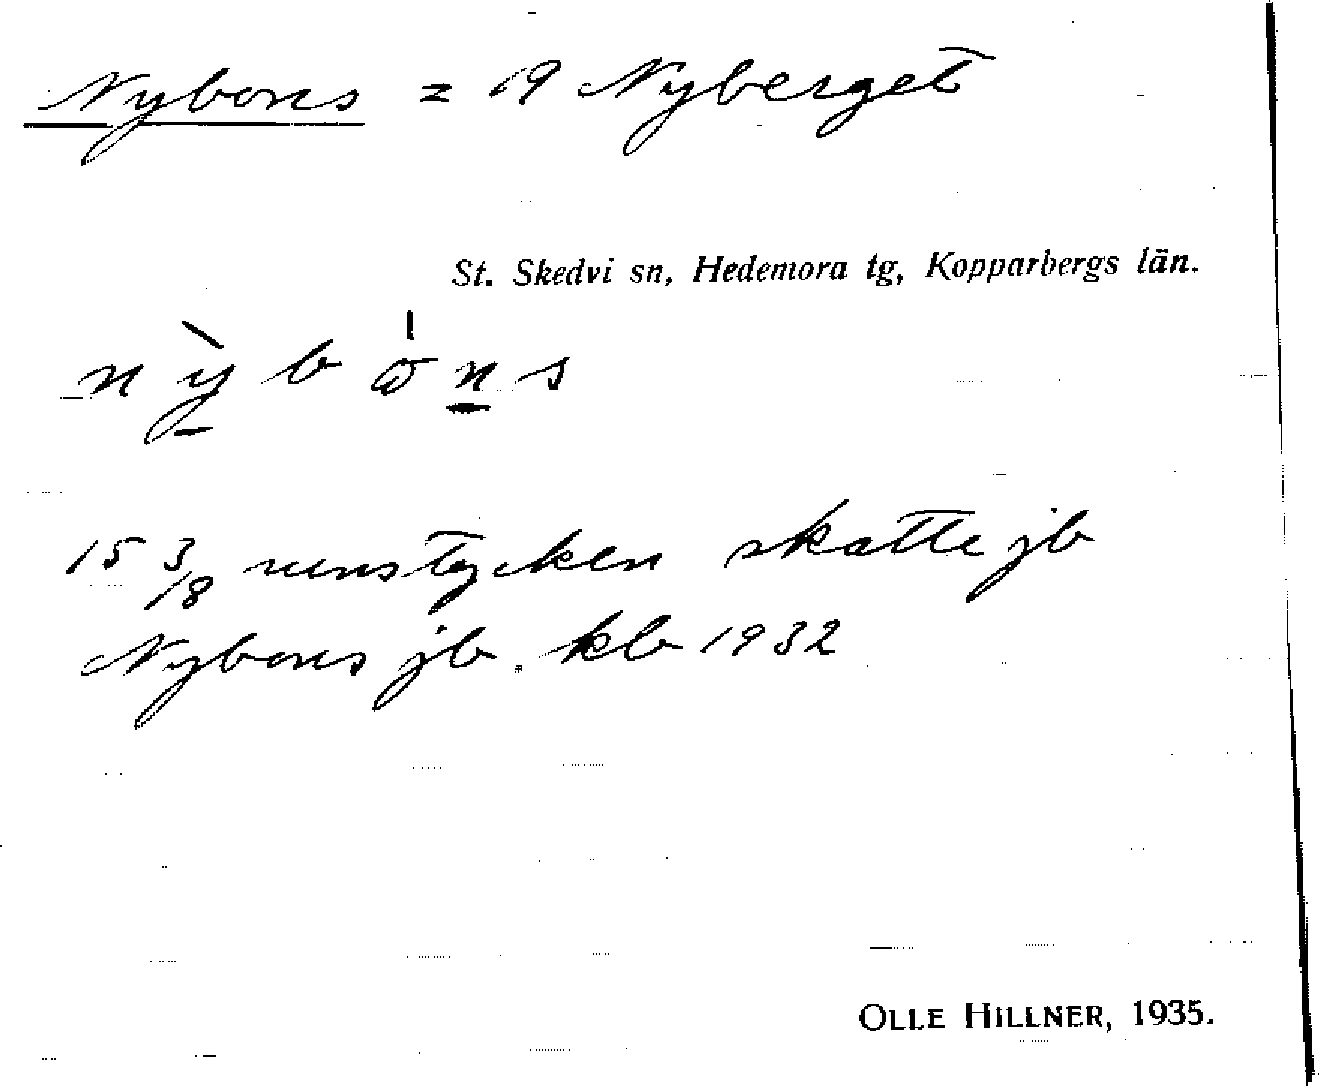 Nybons = 19 Nyberget
St. Skedvi sn, Hedemora tg, Kopparbergs län.
15 3/18 runstycken skatte jb
Nybons jb. kb 1932
OLLE HILLNER, 1935.